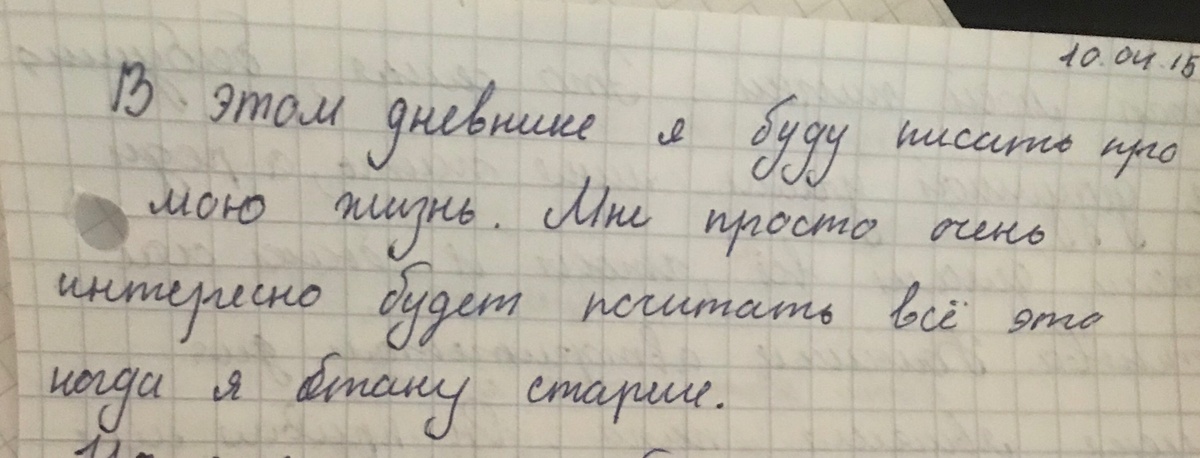 10.04.15
В этом дневнике я буду писать про
мою жизнь. Мне просто очень
интересно будет почитать всё это
когда я стану старше.